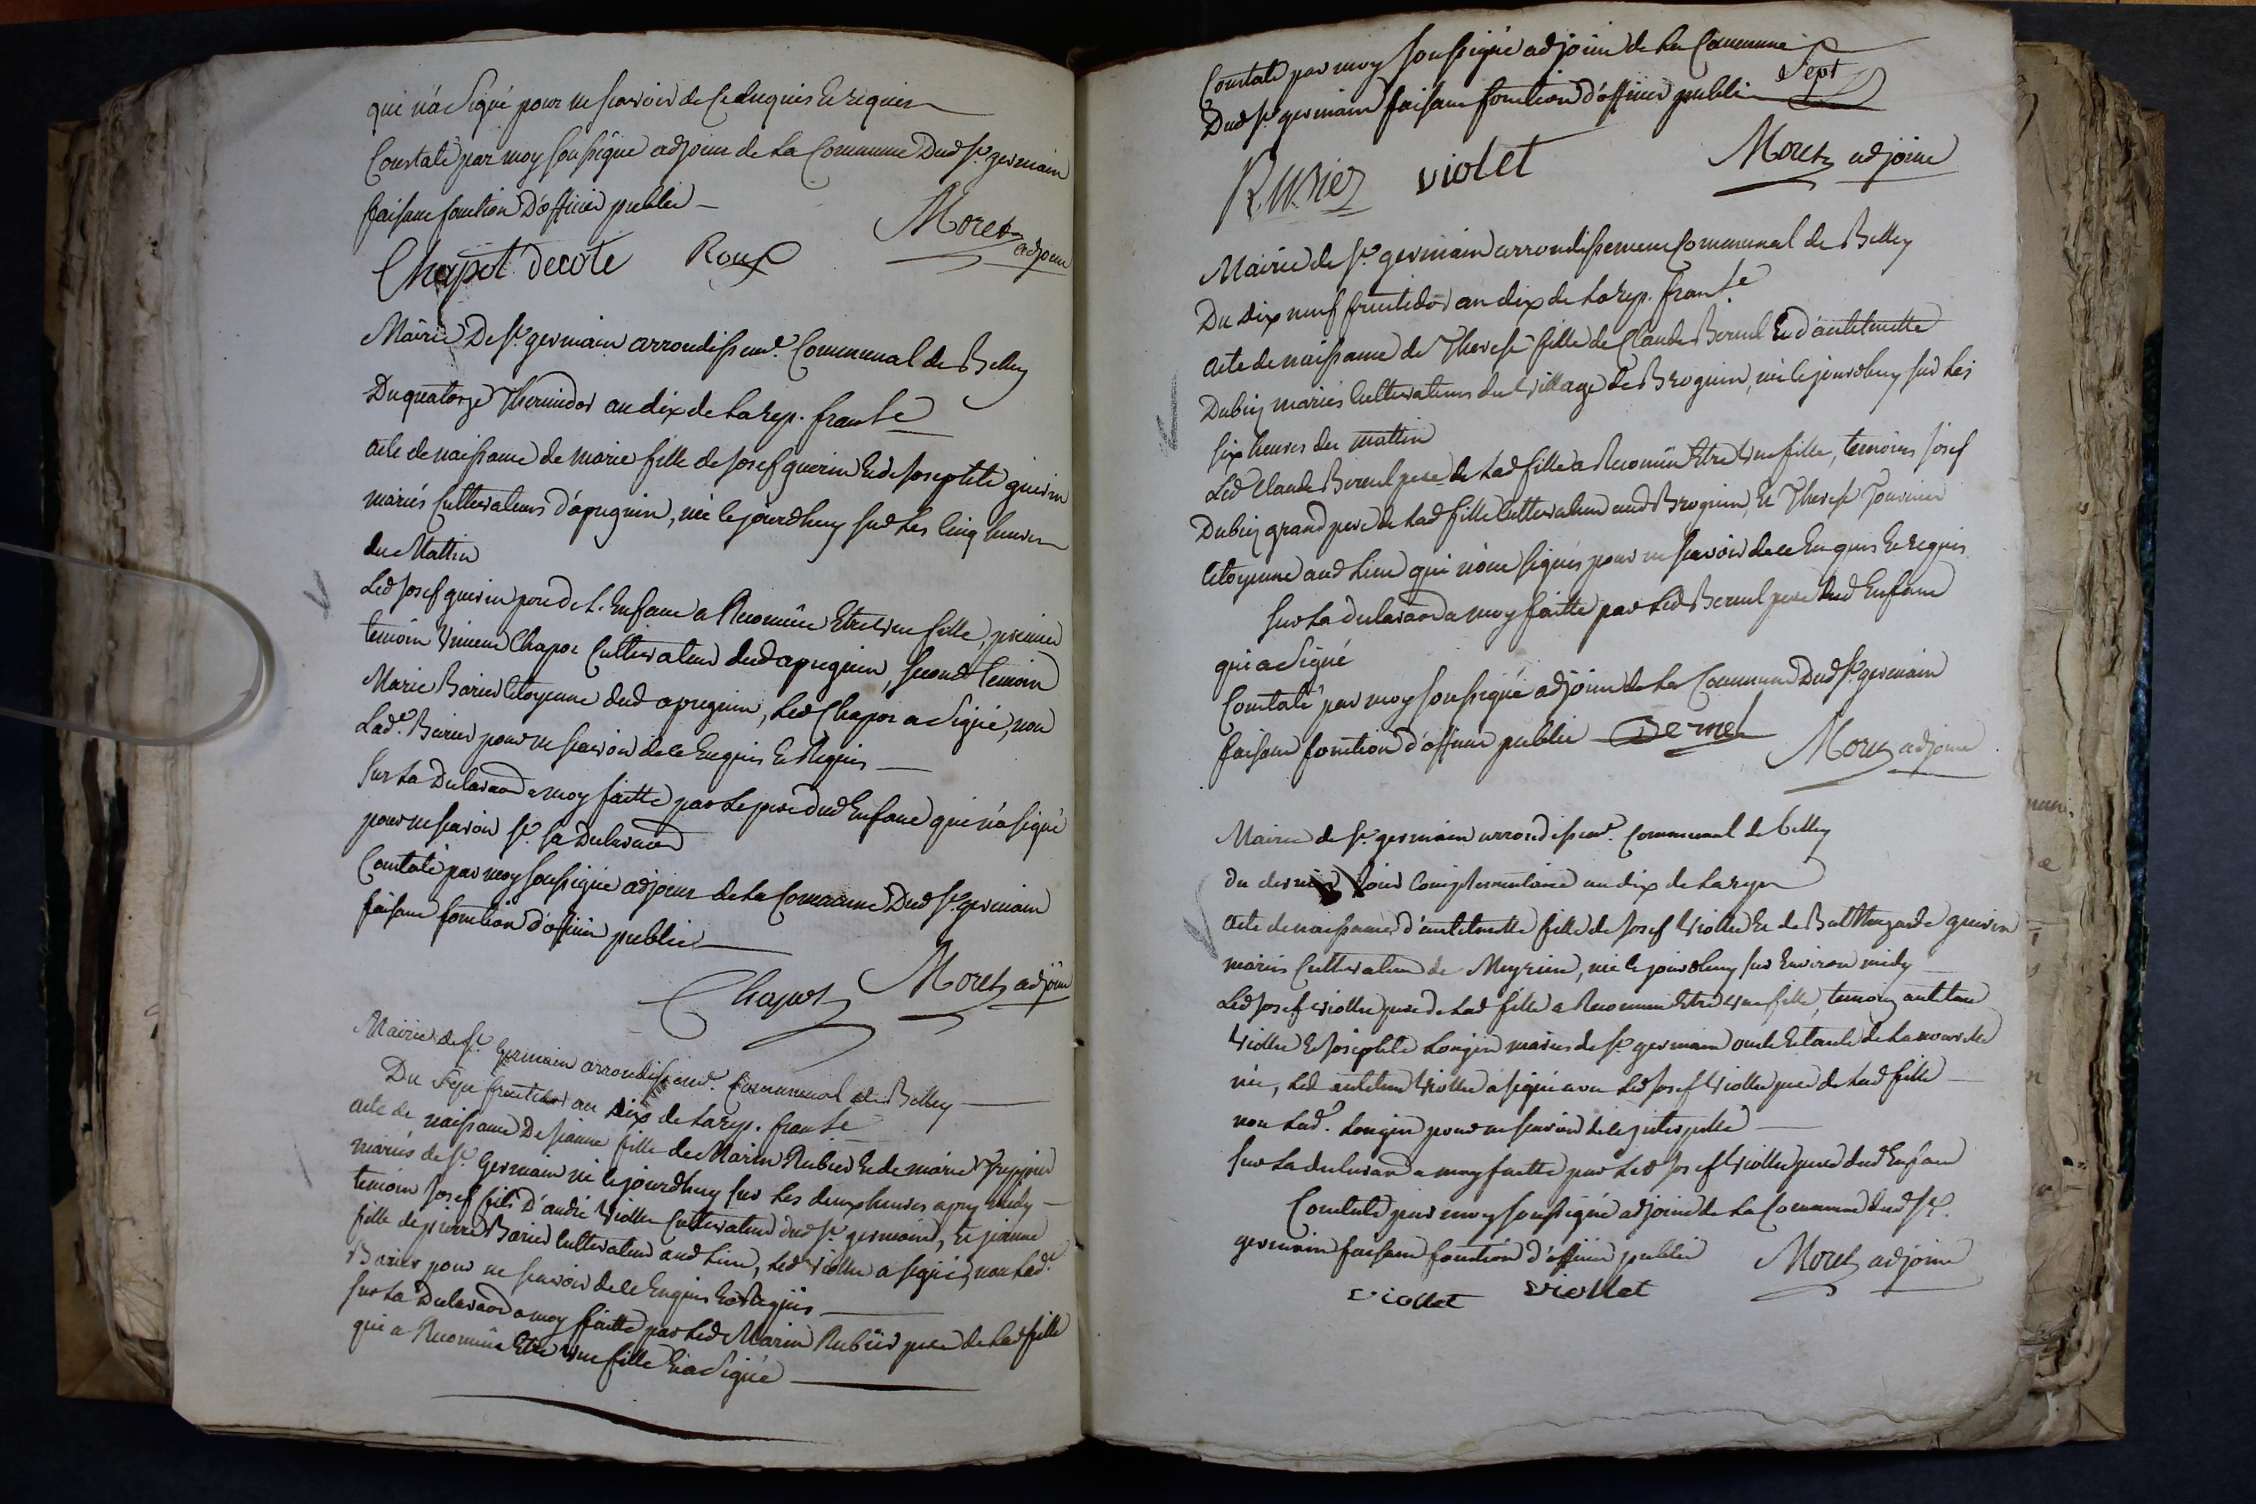 qui n'a signé pour ne scavoir de ce enquis et requis
Constaté par moy soussigné adjoint de la Commune Dud St germain
faisant fonction D'officier public
Moret adjoint
Chapot decote Roux
Mairie De St germain arrondissemt. Communal de Belley
Du quatorze Thermidor an dix de la rep. franse
acte de naissance de marie fille de Josef guerin et de Josephte guerin
mariés Cultivateurs d'apregnin, née le jourdhuy sur les cinq heures
du Mattin
Led Josef guerin pere de l'Enfant a Reconnüe Etre une fille, premier
temoin Vincent Chapot Cultivateur dud apregnin, second temoin
Marie Barier Citoyenne dud apregnin, Led Chapot a signé, non
Lade. Barier pour ne scavoir de ce Enquis Et Requis
Sur la Declaraon a moy faitte par le pere dud Enfant qui n'a signé
pour ne scavoir st. sa Declaraon
Constaté par moy soussigné adjoint de la Commune Dud St. germain
faisant fonction d'officier public
Chapot Moret adjoint
Mairie de St. Germain arrondissemt. Communal de Belley
Du sept fructidor an dix de la rep. franse
acte de naissance De jeanne fille de Marin Rubier Et de marie
mariés de St. Germain né le jourdhuy sur les deux heures apres midy
temoin Josef fils D'andré Viollet Cultivateur dud St. germain, Et jeanne
fille de pierre Barier Cultivateur aud Lieu, Led Viollet a signé, non Lade.
Barier pour ne scavoir de ce Enquis Et Requis
Sur la Declaraon a moy faitte par Led Marin Rubier pere de lad fille
qui a Reconnüe Etre une fille Et a signé
Constaté par moy soussigné adjoint de la Commune
Dud St. germain faisant fonction d'officier public Sept
Rubier violet Moret adjoint
Mairie de St. germain arrondissement Communal de Belley
Du dix neuf fructidor an dix de la rep. franse
acte de naissance de Therese fille de Claude Bernel Et d'antelmette
Dubiez mariés Cultivateurs du village de Brognin, née le jourdhuy sur les
six heures du mattin
Led Claude Bernel pere de lad fille a Reconnüe Etre une fille, temoins Josef
Dubiez grand pere de lad fille Cultivateur aud Brognin, Et Therese
Citoyenne aud Lieu qui n'ont signés pour ne scavoir de ce Enquis Et requis
Sur la declaraon a moy faitte par Led Bernel pere dud Enfant
qui a signé
Constaté par moy soussigné adjoint de la Commune Dud St. germain
faisant fonction d'officier public Bernel
Moret adjoint
Mairie de St. germain arrondissemt. Communal de belley
du dernier Jour Complementaire an dix de la rep
acte de naissance d'antelmette fille de Josef Viollet Et de Balthazarde guerin
mariés Cultivateurs de Meyrieu, née le jourdhuy sur Environ midy
Led Josef viollet pere de lad fille a Reconnue Etre une fille, temoins antelme
Viollet Et Josephte Longin mariés de St. germain oncle Et tante de la nouvelle
née, Led antelme Viollet a signé avec Led Josef Viollet pere de lad fille
non Lade. Longin pour ne scavoir de ce interpellé
Sur la declaraon a moy faitte par Led Josef Viollet pere dud Enfant
Constaté par moy soussigné adjoint de la Commune dud St.
germain faisant fonction d'officier public Moret adjoint
viollet viollet